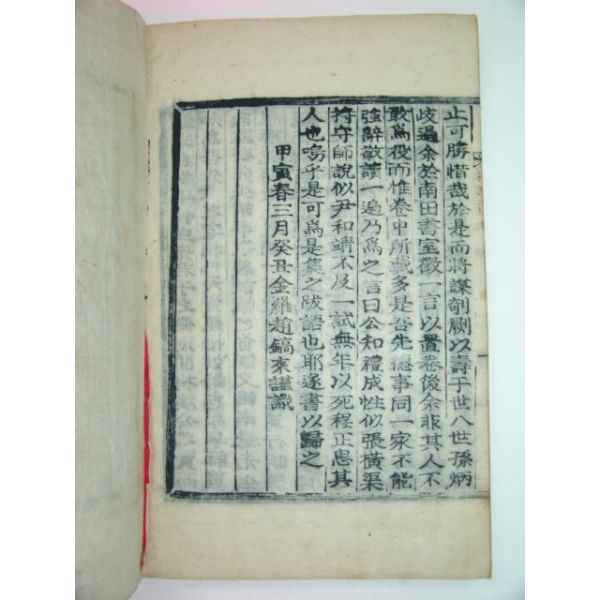 止可勝惜哉於是而將謀剞劂以壽于世八世孫炳
歧過余於南田書室徵一言以置卷後余非其人不
敢爲役而惟卷中所載多是吾先德事同一家不能
強辭敬讀一遍乃爲之言曰公知禮成性似張橫渠
持守師說似尹和靖不及一試無年以死程正思其
人也嗚乎是可爲是集之跋語也耶遂書以歸之
甲寅春三月癸丑金羅趙鎬來謹識